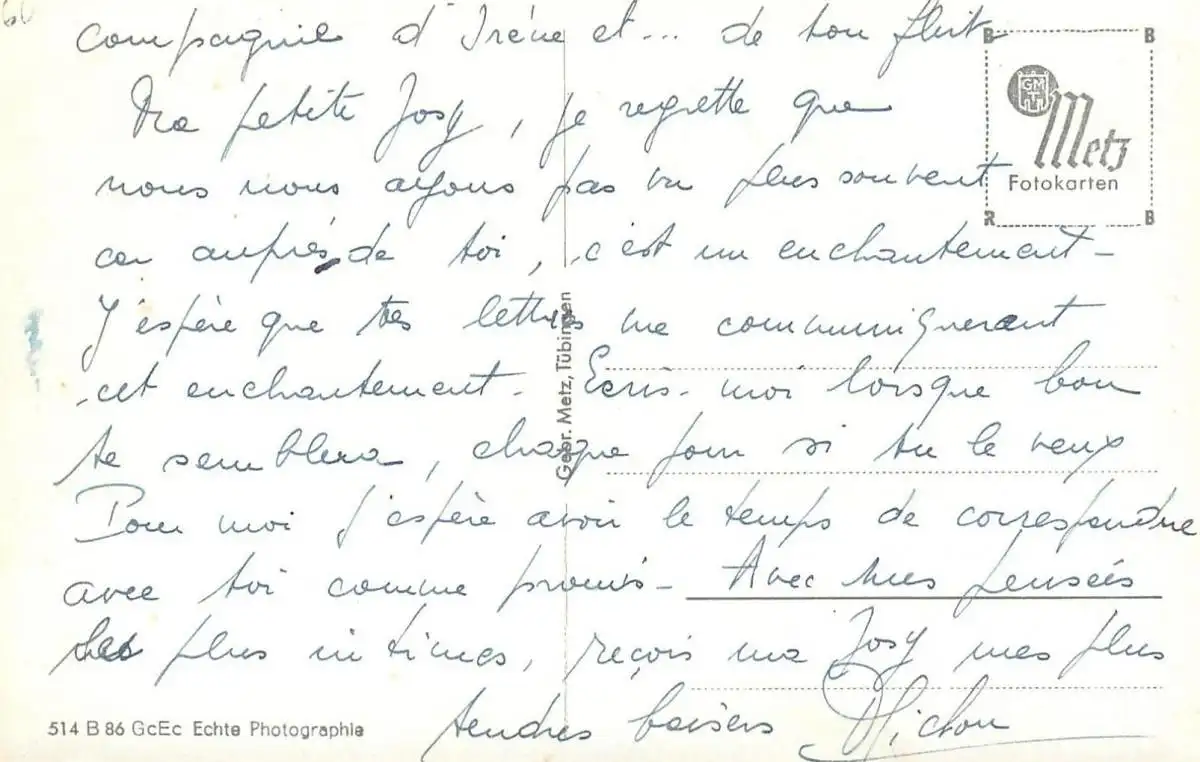 60
compagnie d'Irène et... de ton flirt
Ma petite Josy, je regrette que
nous nous ayons pas vu plus souvent
car auprès de toi, c'est un enchantement -
J'espère que tes lettres me communiqueront
cet enchantement - Ecris-moi lorsque bon
te semblera, chaque jour si tu le veux
Pour moi j'espère avoir le temps de correspondre
avec toi comme promis - Avec mes pensées
les plus intimes, reçois ma Josy mes plus
tendres baisers Michou
B B
GMT
Metz
Fotokarten
R B
Gebr. Metz, Tübingen
514 B 86 GcEc Echte Photographie